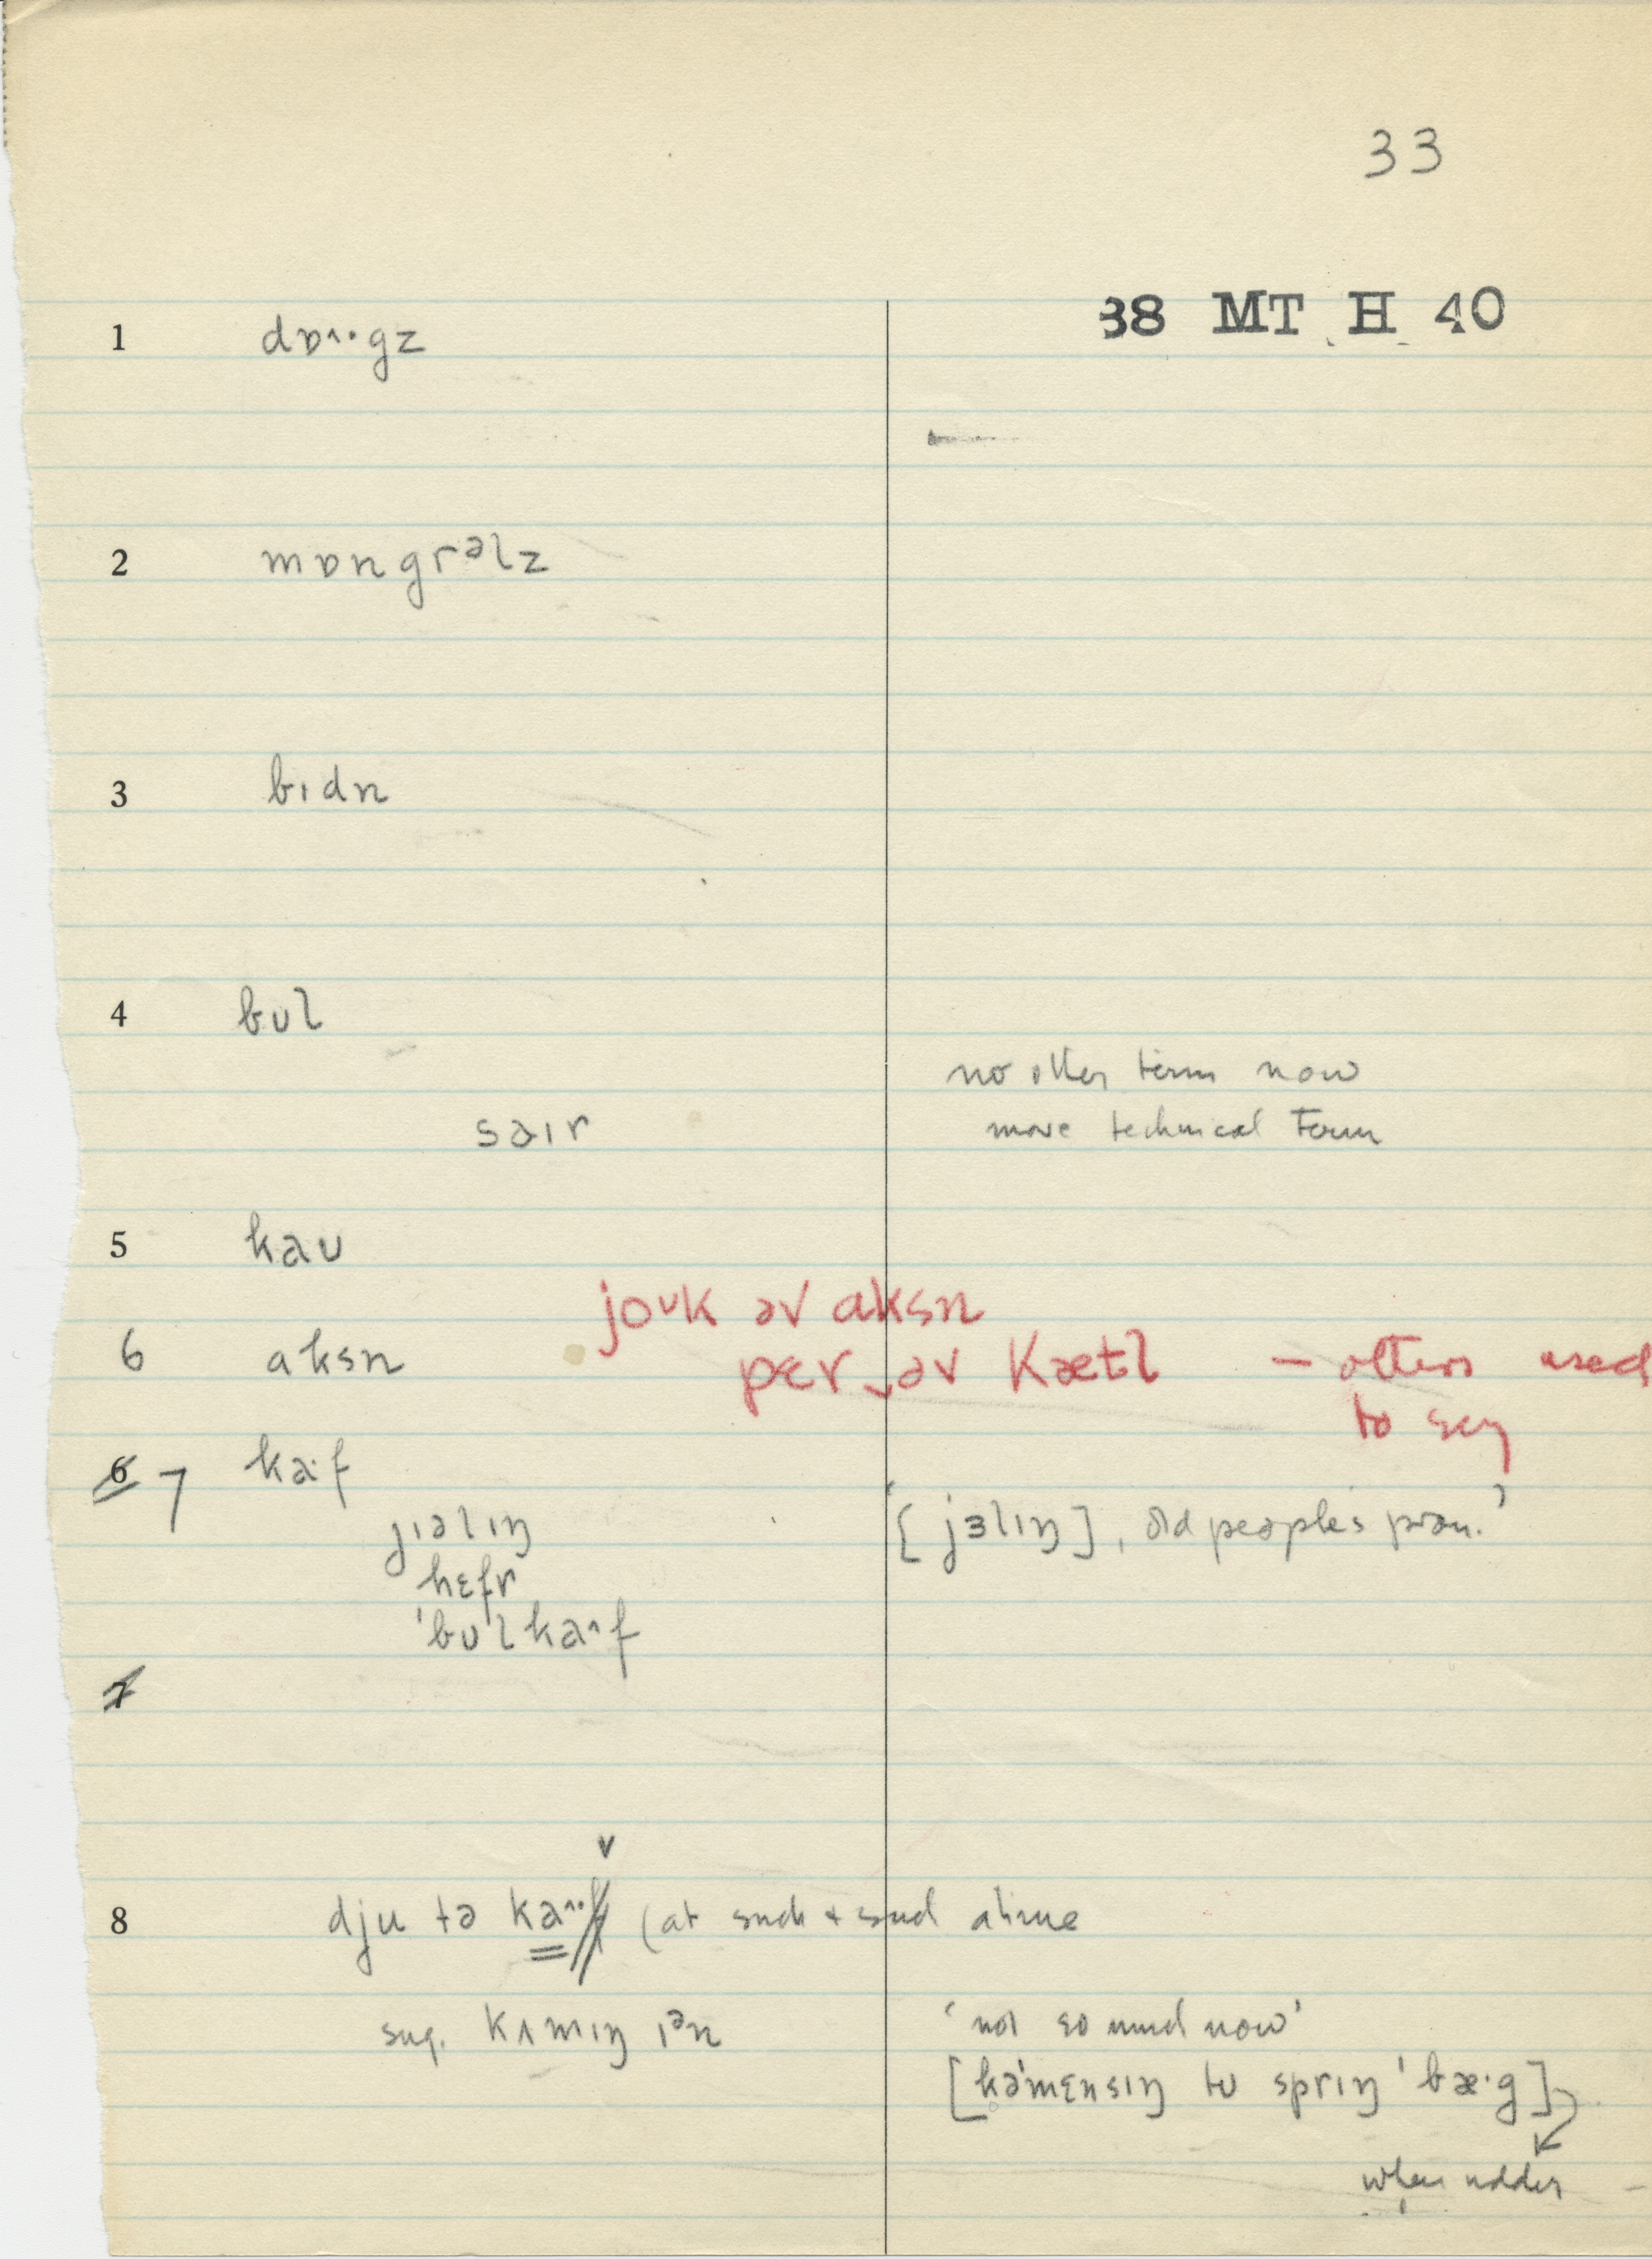 33
38 MT H 40
1 dɒ˄·gz
2 mɒngrᵊlz
3 bɪdn
4 bʊl
no other term now
saɪr more technical term
5 kaʊ
joᶷk əv aksn
6 aksn
pɛr‿əv kætl — others used
to say
6 7 ka·f
jɪəlɪŋ '[jɜlɪŋ], old people's pron.'
hɛfr
'bʊlka˄f
7
v
8 dju tə ka˄·f (at such + such a time
sug. kʌmɪŋ ɪᵊn 'not so much now'
[kə'mɛnsɪŋ tʊ sprɪŋ 'bæ·g]
when udder –